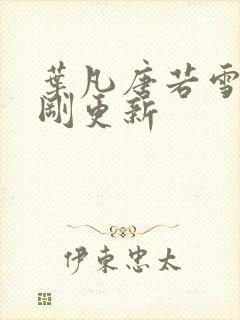 葉凡唐若雪
剛更新
伊東忠太